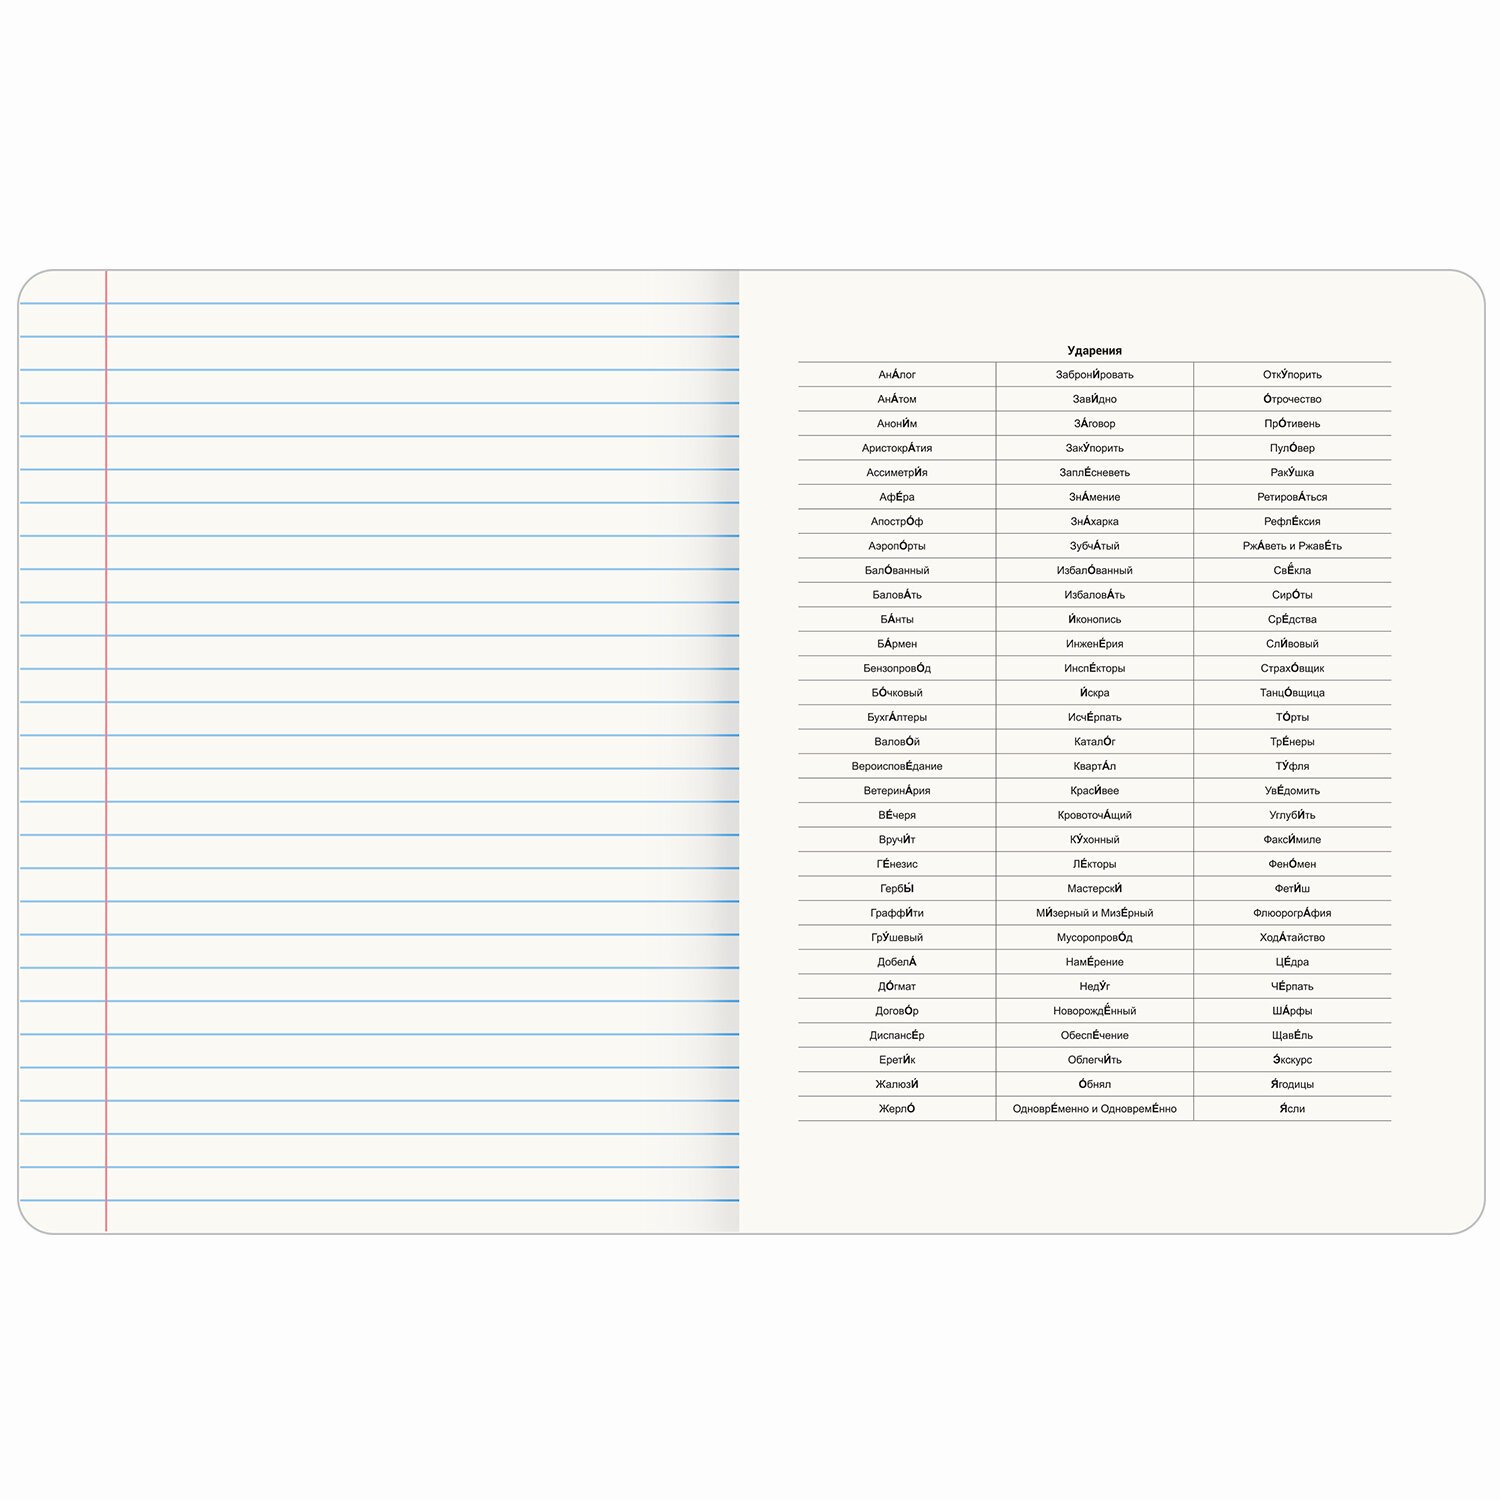 Ударения
АнА́лог ЗабронИ́ровать ОткУ́порить
АнА́том ЗавИ́дно О́трочество
АнонИ́м ЗА́говор ПрО́тивень
АристокрА́тия ЗакУ́порить ПулО́вер
АссиметрИ́я ЗаплЕ́сневеть РакУ́шка
АфЕ́ра ЗнА́мение РетировА́ться
АпострО́ф ЗнА́харка РефлЕ́ксия
АэропО́рты ЗубчА́тый РжА́веть и РжавЕ́ть
БалО́ванный ИзбалО́ванный СвЁ́кла
БаловА́ть ИзбаловА́ть СирО́ты
БА́нты И́конопись СрЕ́дства
БА́рмен ИнженЕ́рия СлИ́вовый
БензопровО́д ИнспЕ́кторы СтрахО́вщик
БО́чковый И́скра ТанцО́вщица
БухгА́лтеры ИсчЕ́рпать ТО́рты
ВаловО́й КаталО́г ТрЕ́неры
ВероисповЕ́дание КвартА́л ТУ́фля
ВетеринА́рия КрасИ́вее УвЕ́домить
ВЕ́черя КровоточА́щий УглубИ́ть
ВручИ́т КУ́хонный ФаксИ́миле
ГЕ́незис ЛЕ́кторы ФенО́мен
ГербЫ́ МастерскИ́ ФетИ́ш
ГраффИ́ти МИ́зерный и МизЕ́рный ФлюорогрА́фия
ГрУ́шевый МусоропровО́д ХодА́тайство
ДобелА́ НамЕ́рение ЦЕ́дра
ДО́гмат НедУ́г ЧЕ́рпать
ДоговО́р НоворождЁ́нный ША́рфы
ДиспансЕ́р ОбеспЕ́чение ЩавЕ́ль
ЕретИ́к ОблегчИ́ть Э́кскурс
ЖалюзИ́ О́бнял Я́годицы
ЖерлО́ ОдноврЕ́менно и ОдновремЕ́нно Я́сли